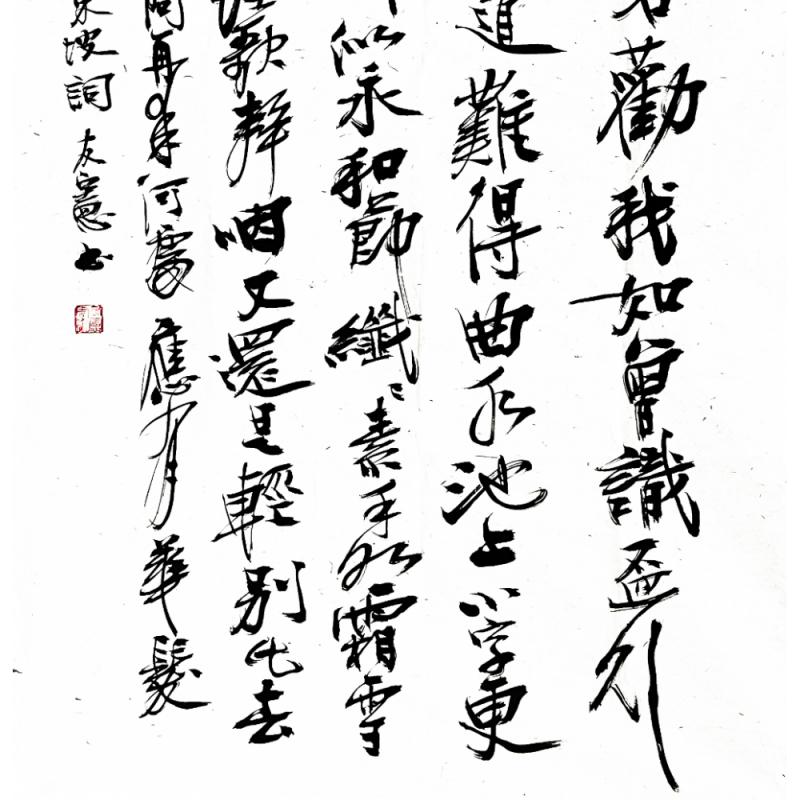 勸我如曾識盃行
道難得曲水池上小字更
似永和節纖〻素手如霜雪
怪歌聲咽又還是輕別此去
問再來何處應有華髮
東坡詞 友憲书